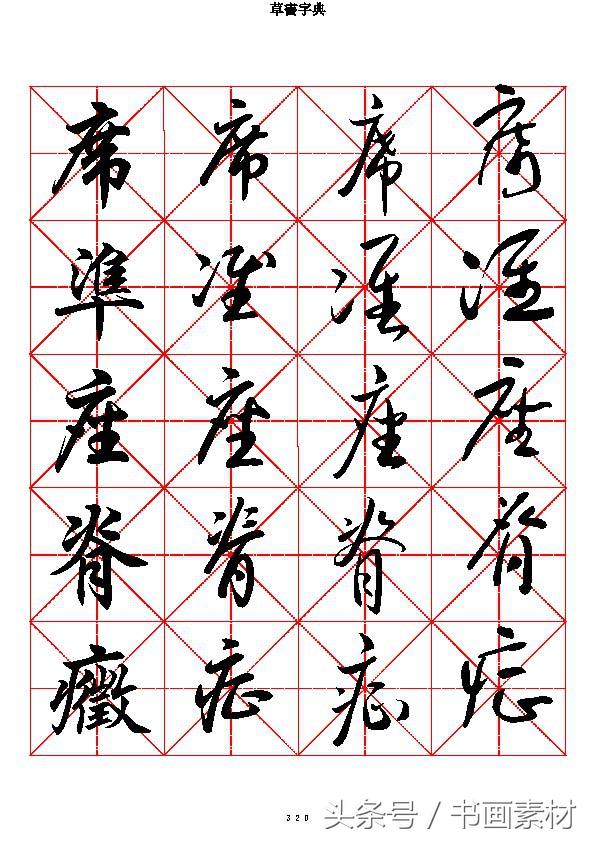 草書字典
席 席 席 席
準 准 准 准
座 座 座 座
脊 脊 脊 脊
癥 症 症 症
320
头条号 / 书画素材